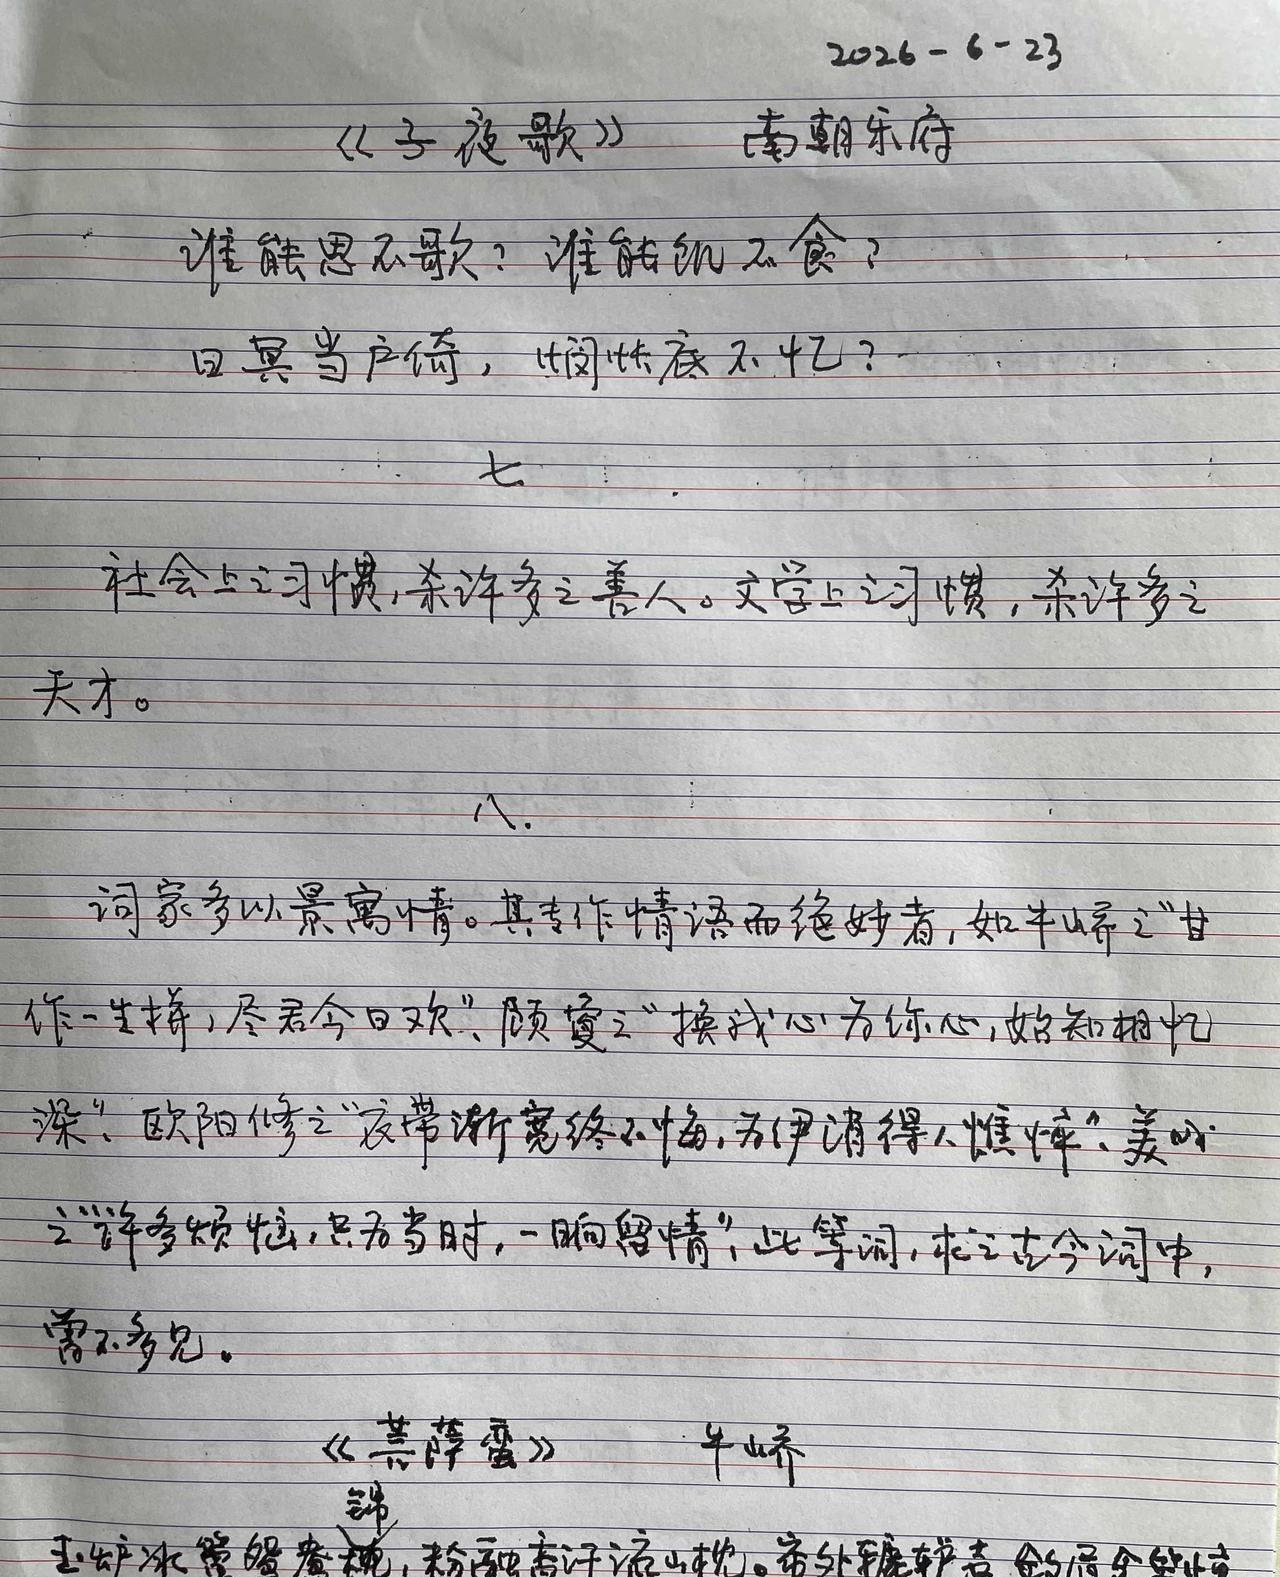 2026-6-23
《子夜歌》 南朝乐府
谁能思不歌？谁能饥不食？
日冥当户倚，惆怅底不忆？
七
社会上之习惯,杀许多之善人。文学上之习惯,杀许多之
天才。
八.
词家多以景寓情。其专作情语而绝妙者,如牛峤之"甘
作一生拚,尽君今日欢"、顾夐之"换我心为你心,始知相忆
深"、欧阳修之"衣带渐宽终不悔,为伊消得人憔悴"、美成
之"许多烦恼,只为当时,一晌留情",此等词,求之古今词中,
曾不多见。
《菩萨蛮》 牛峤
锦
玉炉冰簟鸳鸯,粉融香汗流山枕。帘外辘轳声